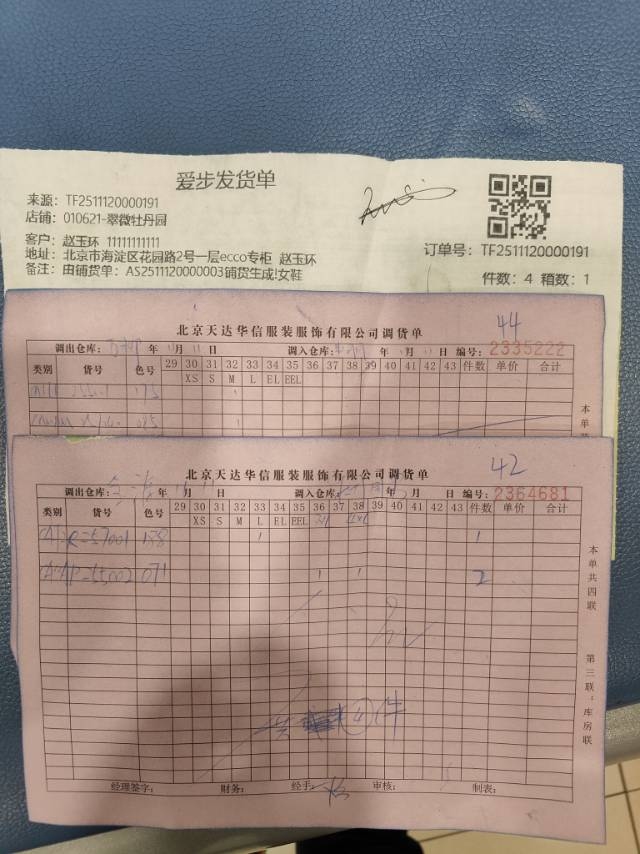 爱步发货单
来源：TF2511120000191
店铺：010621-翠微牡丹园
客户：赵玉环 11111111111
订单号：TF2511120000191
地址：北京市海淀区花园路2号一层ecco专柜 赵玉环
备注：由铺货单：AS2511120000003铺货生成!女鞋
件数：4 箱数：1
44
北京天达华信服装服饰有限公司调货单
调出仓库： 年 11月 11日 调入仓库： 年 11月 11日 编号：2335222
类别 货号 色号 29 30 31 32 33 34 35 36 37 38 39 40 41 42 43 件数 单价 合计
XS S M L EL EEL
本单
42
北京天达华信服装服饰有限公司调货单
调出仓库： 年 月 日 调入仓库： 年 月 日 编号：2364681
类别 货号 色号 29 30 31 32 33 34 35 36 37 38 39 40 41 42 43 件数 单价 合计
XS S M L EL EEL
57001 158 1 1
071 1 1 2
本单共四联
第三联：库房联
共 件
经理签字： 财务： 经手： 审核： 制表：